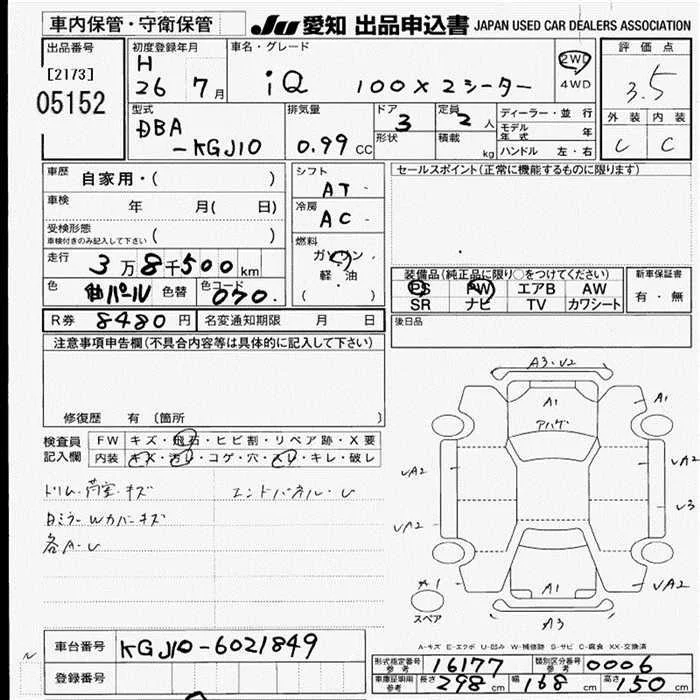 車内保管・守衛保管
JU 愛知 出品申込書 JAPAN USED CAR DEALERS ASSOCIATION
出品番号
[2173]
05152
初度登録年月
H
26 7月
車名・グレード
iQ 100X 2シーター
2WD
4WD
評価点
3.5
外装 内装
C C
型式
DBA
-KGJ10
排気量
0.99 CC
ドア
3
形状
定員
2人
積載
kg
ディーラー・並行
モデル年式 年
ハンドル 左・右
車歴
自家用・( )
車検
年 月( 日)
受検形態
車検付きのみ記入して下さい ( )
走行
3万8千500km
色
パール
色替
色コード
070.
シフト
AT
冷房
AC
燃料
ガソリン
軽・油
( )
セールスポイント(正常に機能するものに限ります)
装備品(純正品に限り○をつけてください)
PS PW エアB AW
SR ナビ TV カワシート
新車保証書
有・無
後日品
R券 8480円 名変通知期限 月 日
注意事項申告欄(不具合内容等は具体的に記入して下さい)
修復歴 有(箇所 )
検査員
記入欄
FW キズ・飛石・ヒビ割・リペア跡・X要
内装 キズ・汚レ・コゲ・穴・スレ・キレ・破レ
ドリム・荷室・キズ
エンドパネル・U
ミラーWカバーキズ
各A・U
A3・U2
A1
アハゲ
A1
UA2
UA2
UA2
U3
A1
A1
UA2
A3
スペア
A-キズ E-エクボ U-凹み W-補修跡 S-サビ C-腐食 XX-交換済
車台番号
KGJ10-6021849
登録番号
型式指定番号 参考 16177
類別区分番号 参考 0006
車庫証明用 参考
長さ 298cm 幅 168cm 高さ 150cm